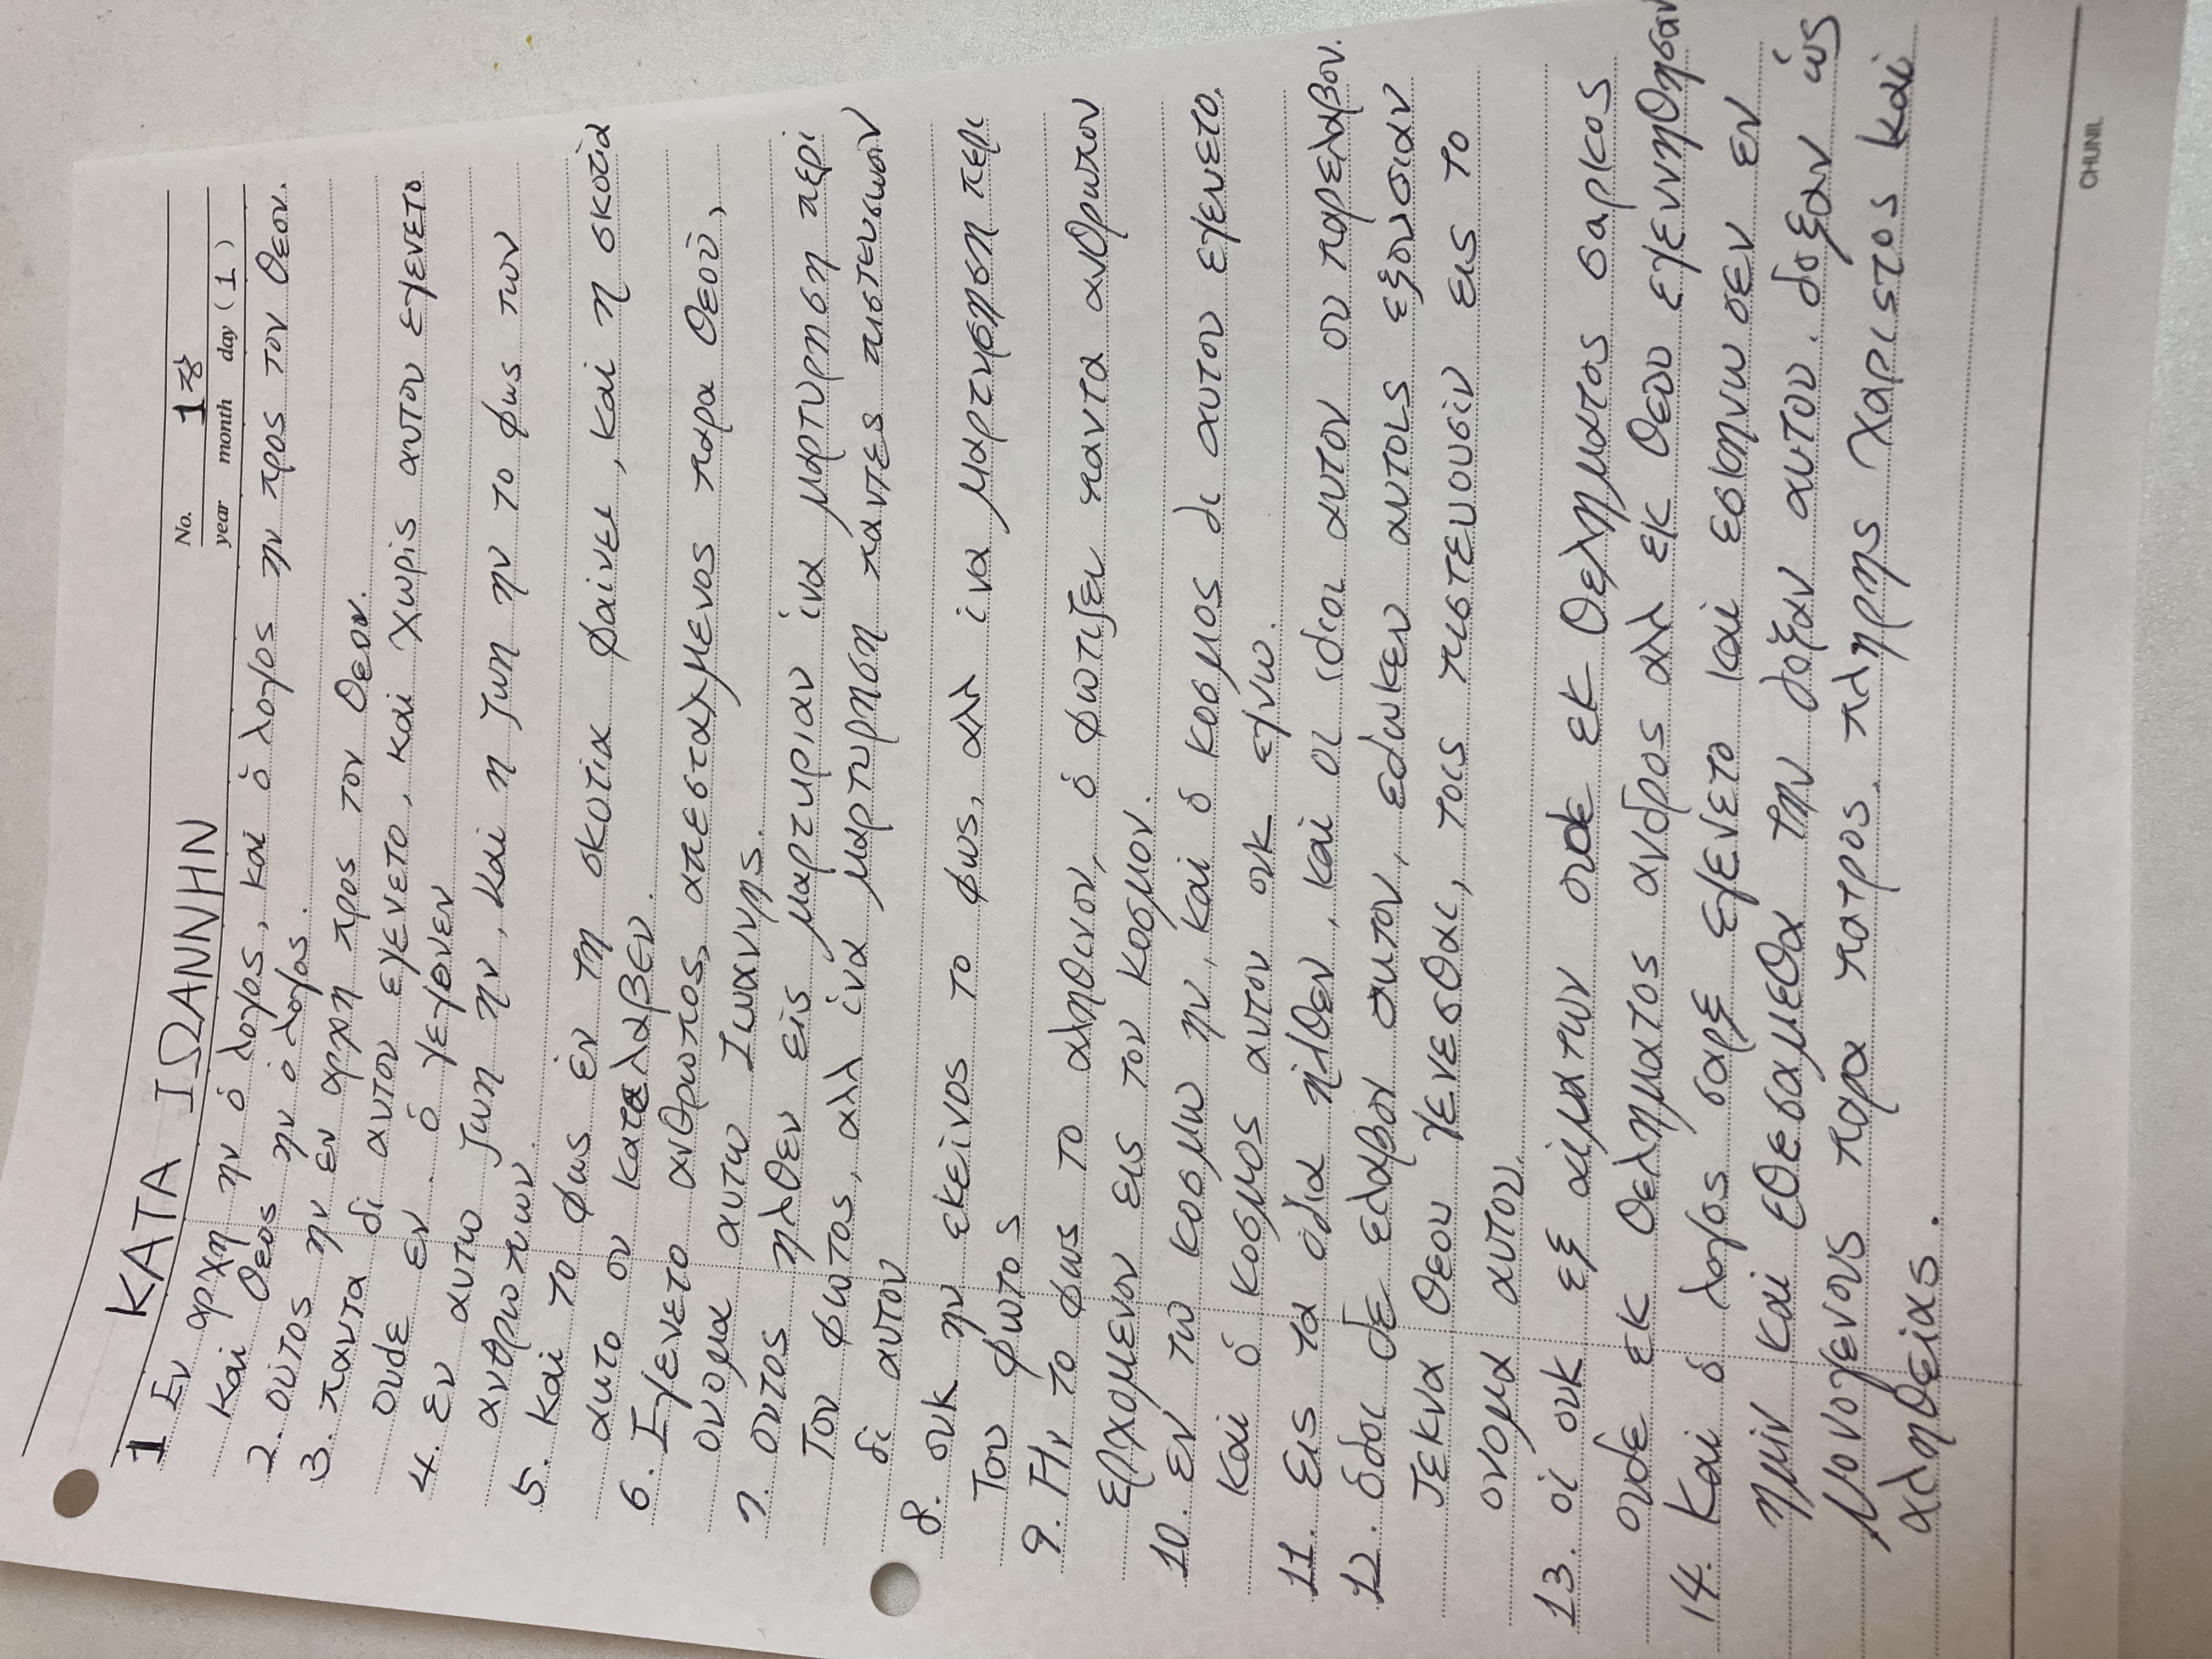 No. 1장
year month day (1)
1 ΚΑΤΑ ΙΩΑΝΝΗΝ
Εν αρχη ην ὁ λογος, και ὁ λογος ην προς τον θεον.
και θεος ην ὁ λογος.
2. ουτος ην εν αρχη προς τον θεον.
3. παντα δι αυτου εγενετο, και χωρις αυτου εγενετο
ουδε εν. ὁ γεγονεν
4. εν αυτω ζωη ην, και η ζωη ην το φως των
ανθρωπων.
5. και το φως ἐν τη σκοτια φαινει, και η σκοτια
αυτο ου κατελαβεν.
6. Εγενετο ανθρωπος, απεσταλμενος παρα θεου,
ονομα αυτω Ιωαννης.
7. ουτος ηλθεν εις μαρτυριαν ἱνα μαρτυρηση περι
του φωτος, αλλ ἱνα μαρτυρηση παντες πιστευσωσιν
δι αυτου
8. ουκ ην εκεινος το φως, αλλ ἱνα μαρτυρηση περι
του φωτος
9. Ην το φως το αληθινον, ὁ φωτιζει παντα ανθρωπον
ερχομενον εις τον κοσμον.
10. εν τω κοσμω ην, και ὁ κοσμος δι αυτου εγενετο.
και ὁ κοσμος αυτον ουκ εγνω.
11. εις τα ιδια ηλθεν, και οι ιδιοι αυτον ου παρελαβον.
12. ὁσοι δε ελαβον αυτον, εδωκεν αυτοις εξουσιαν
τεκνα θεου γενεσθαι, τοις πιστευουσιν εις το
ονομα αυτου.
13. οἱ ουκ εξ αἱματων ουδε εκ θεληματος σαρκος
ουδε εκ θεληματος ανδρος αλλ εκ θεου εγεννηθησαν
14. Και ὁ λογος σαρξ εγενετο και εσκηνωσεν εν
ημιν και εθεασαμεθα την δοξαν αυτου. δοξαν ὡς
μονογενους παρα πατρος. πληρης χαριτος και
αληθειας.
CHUNIL